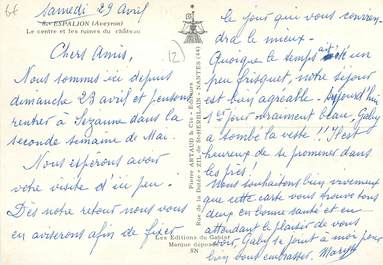 6€
Samedi 29 Avril
8.- ESPALION (Aveyron)
Le centre et les ruines du château
Chers Amis,
Nous sommes ici depuis
dimanche 23 avril et pensons
rentrer à Sézanne dans la
seconde semaine de Mai.
Nous espérons avoir
votre visite d'ici peu.
Dès notre retour nous vous
en aviserons afin de fixer
12
Pierre ARTAUD & Cie - Editeurs
Rue de la Dutée - ZIL de St-HERBLAIN - NANTES (44)
Les Editions du Gabier
Marque déposée
SN
le jour qui vous convien-
dra le mieux.
Quoique le temps ait été un
peu frisquet, notre séjour
est bien agréable. Aujourd'hui
1er jour vraiment beau, Gaby
a tombé la veste !! Il est
heureux de se promener dans
les prés !
Nous souhaitons bien vivement
que cette carte vous trouve tous
deux en bonne santé et en
attendant le plaisir de vous
voir, Gaby se joint à moi pour
bien vous embrasser.